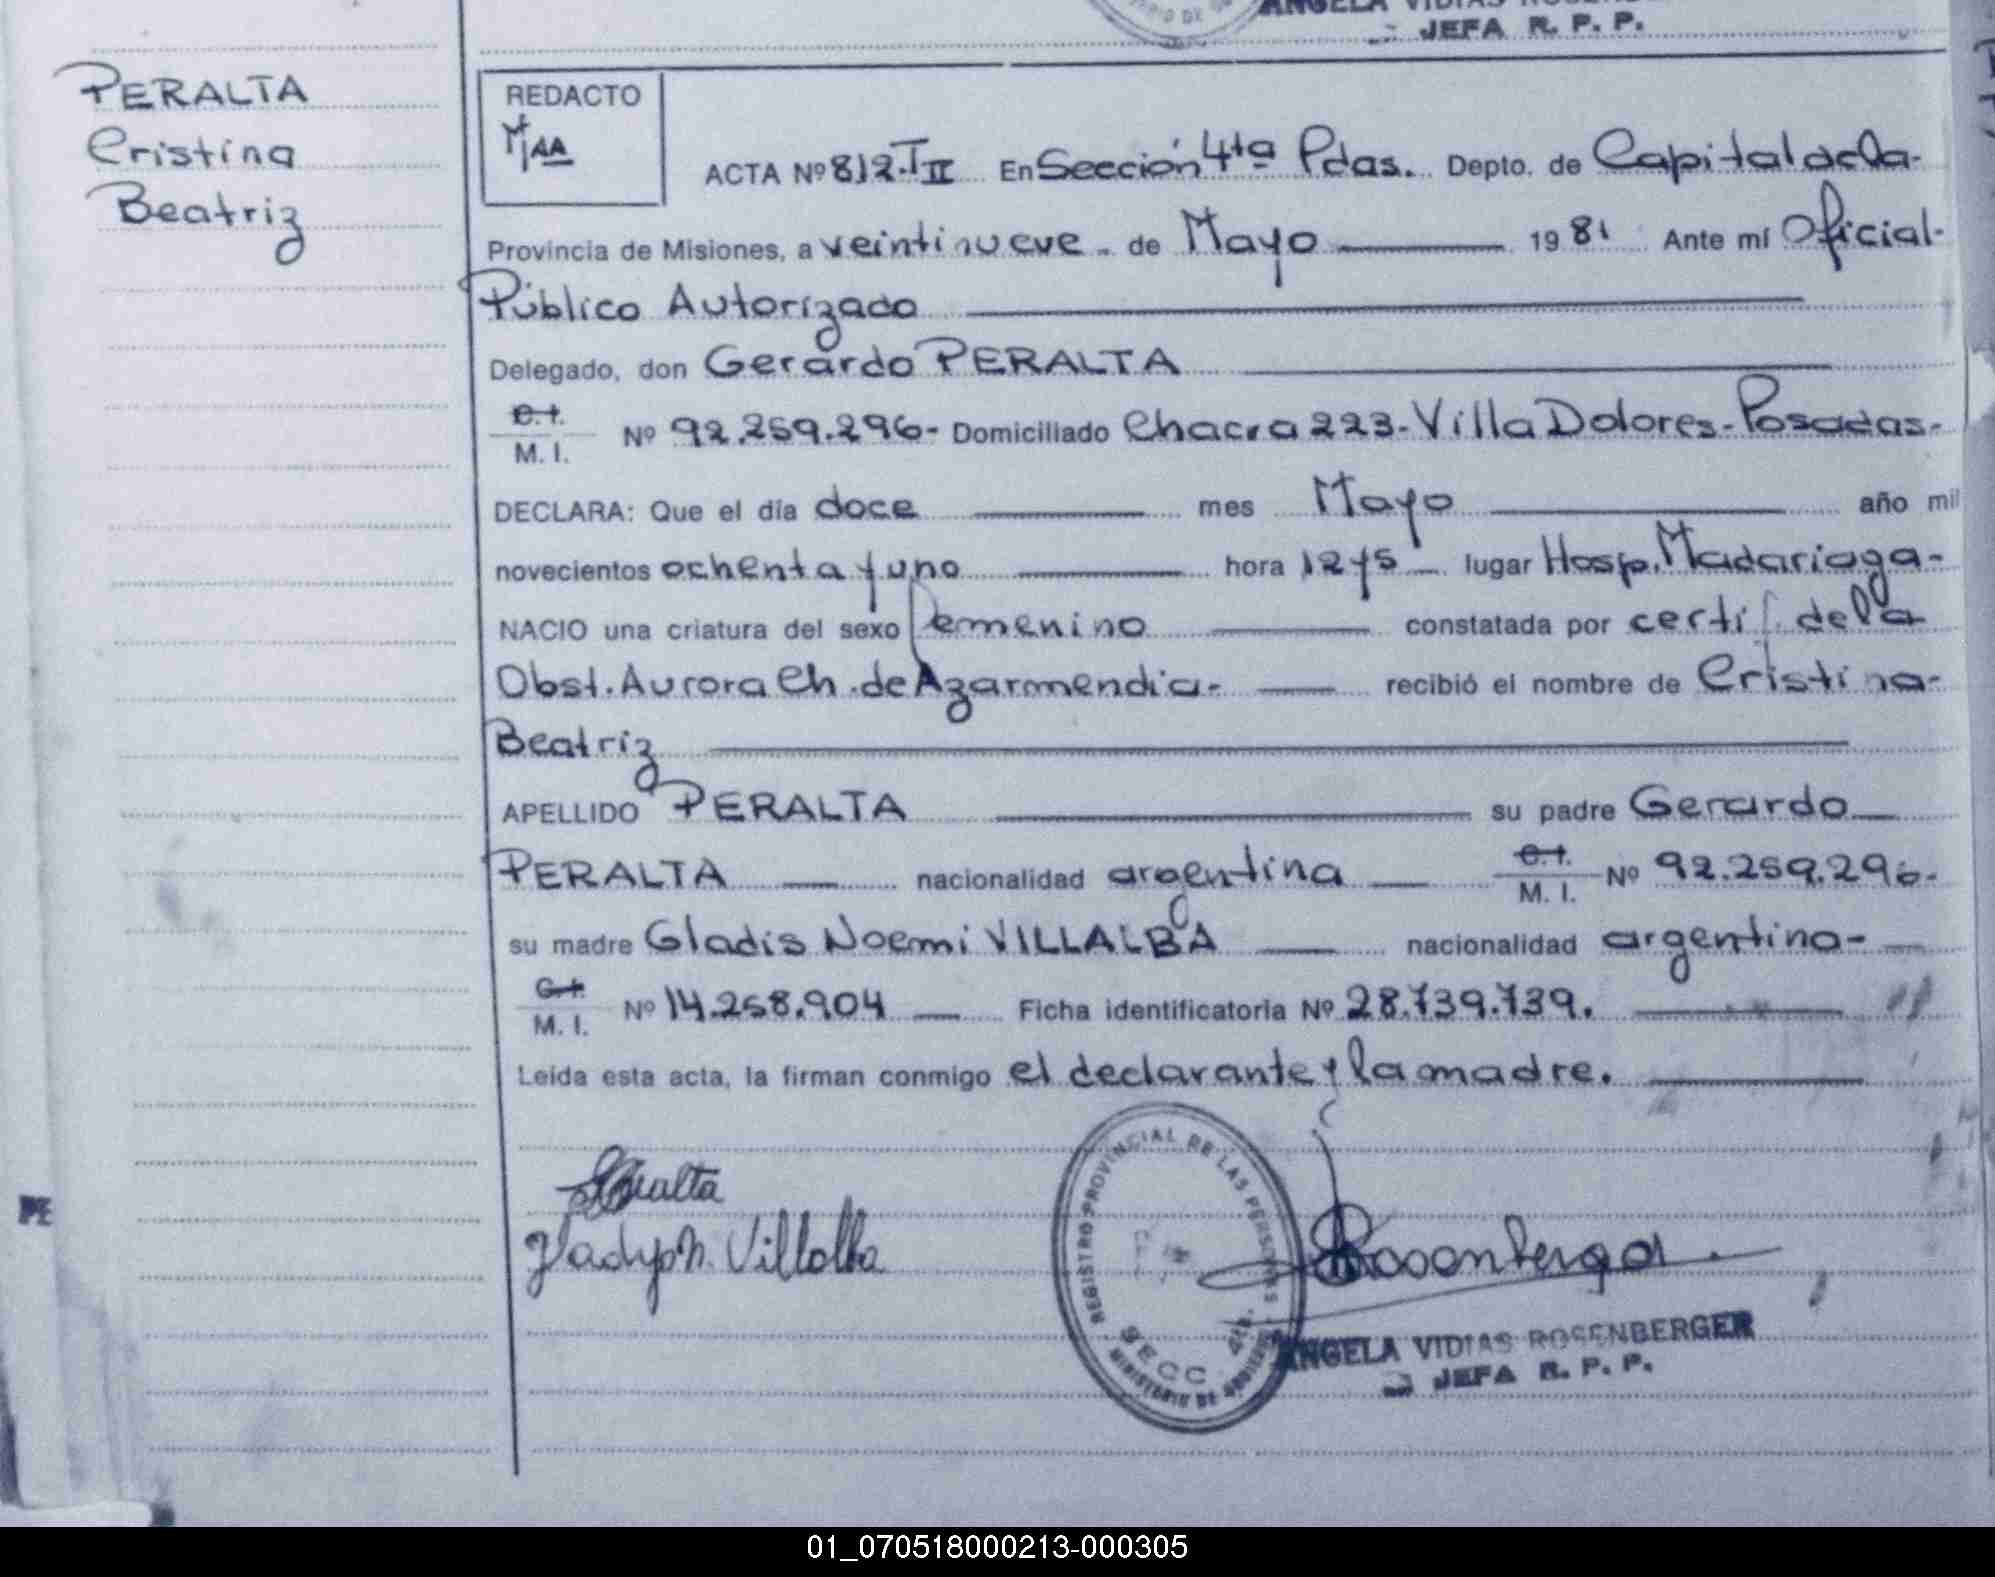 ANGELA VIDIAS ROSENBE
JEFA R. P. P.
PERALTA
Cristina
Beatriz
REDACTO
ACTA Nº 812. T II En Sección 4ta Pdas. Depto. de Capital de la-
Provincia de Misiones, a veintinueve - de Mayo 1981 Ante mí Oficial-
Público Autorizado
Delegado, don Gerardo PERALTA
C.I.
M. I. Nº 92.259.296- Domiciliado Chacra 223-Villa Dolores-Posadas-
DECLARA: Que el día doce mes Mayo año mil
novecientos ochenta y uno hora 12 y 5 lugar Hosp. Madariaga-
NACIO una criatura del sexo femenino constatada por certif. de la
Obst. Aurora Ch. de Azarmendia- recibió el nombre de Cristina-
Beatriz
APELLIDO PERALTA su padre Gerardo
PERALTA nacionalidad argentina C.I. M. I. Nº 92.259.296-
su madre Gladis Noemi VILLALBA nacionalidad argentina-
C.I.
M. I. Nº 14.258.904 Ficha identificatoria Nº 28.739.739.
Leída esta acta, la firman conmigo el declarante y la madre.
Peralta
Gladys N. Villalba
REGISTRO PROVINCIAL DE LAS PERSONAS
SECC 4ta.
MINISTERIO DE GOBIERNO
Rosenberger
ANGELA VIDIAS ROSENBERGER
JEFA R. P. P.
PE
01_070518000213-000305